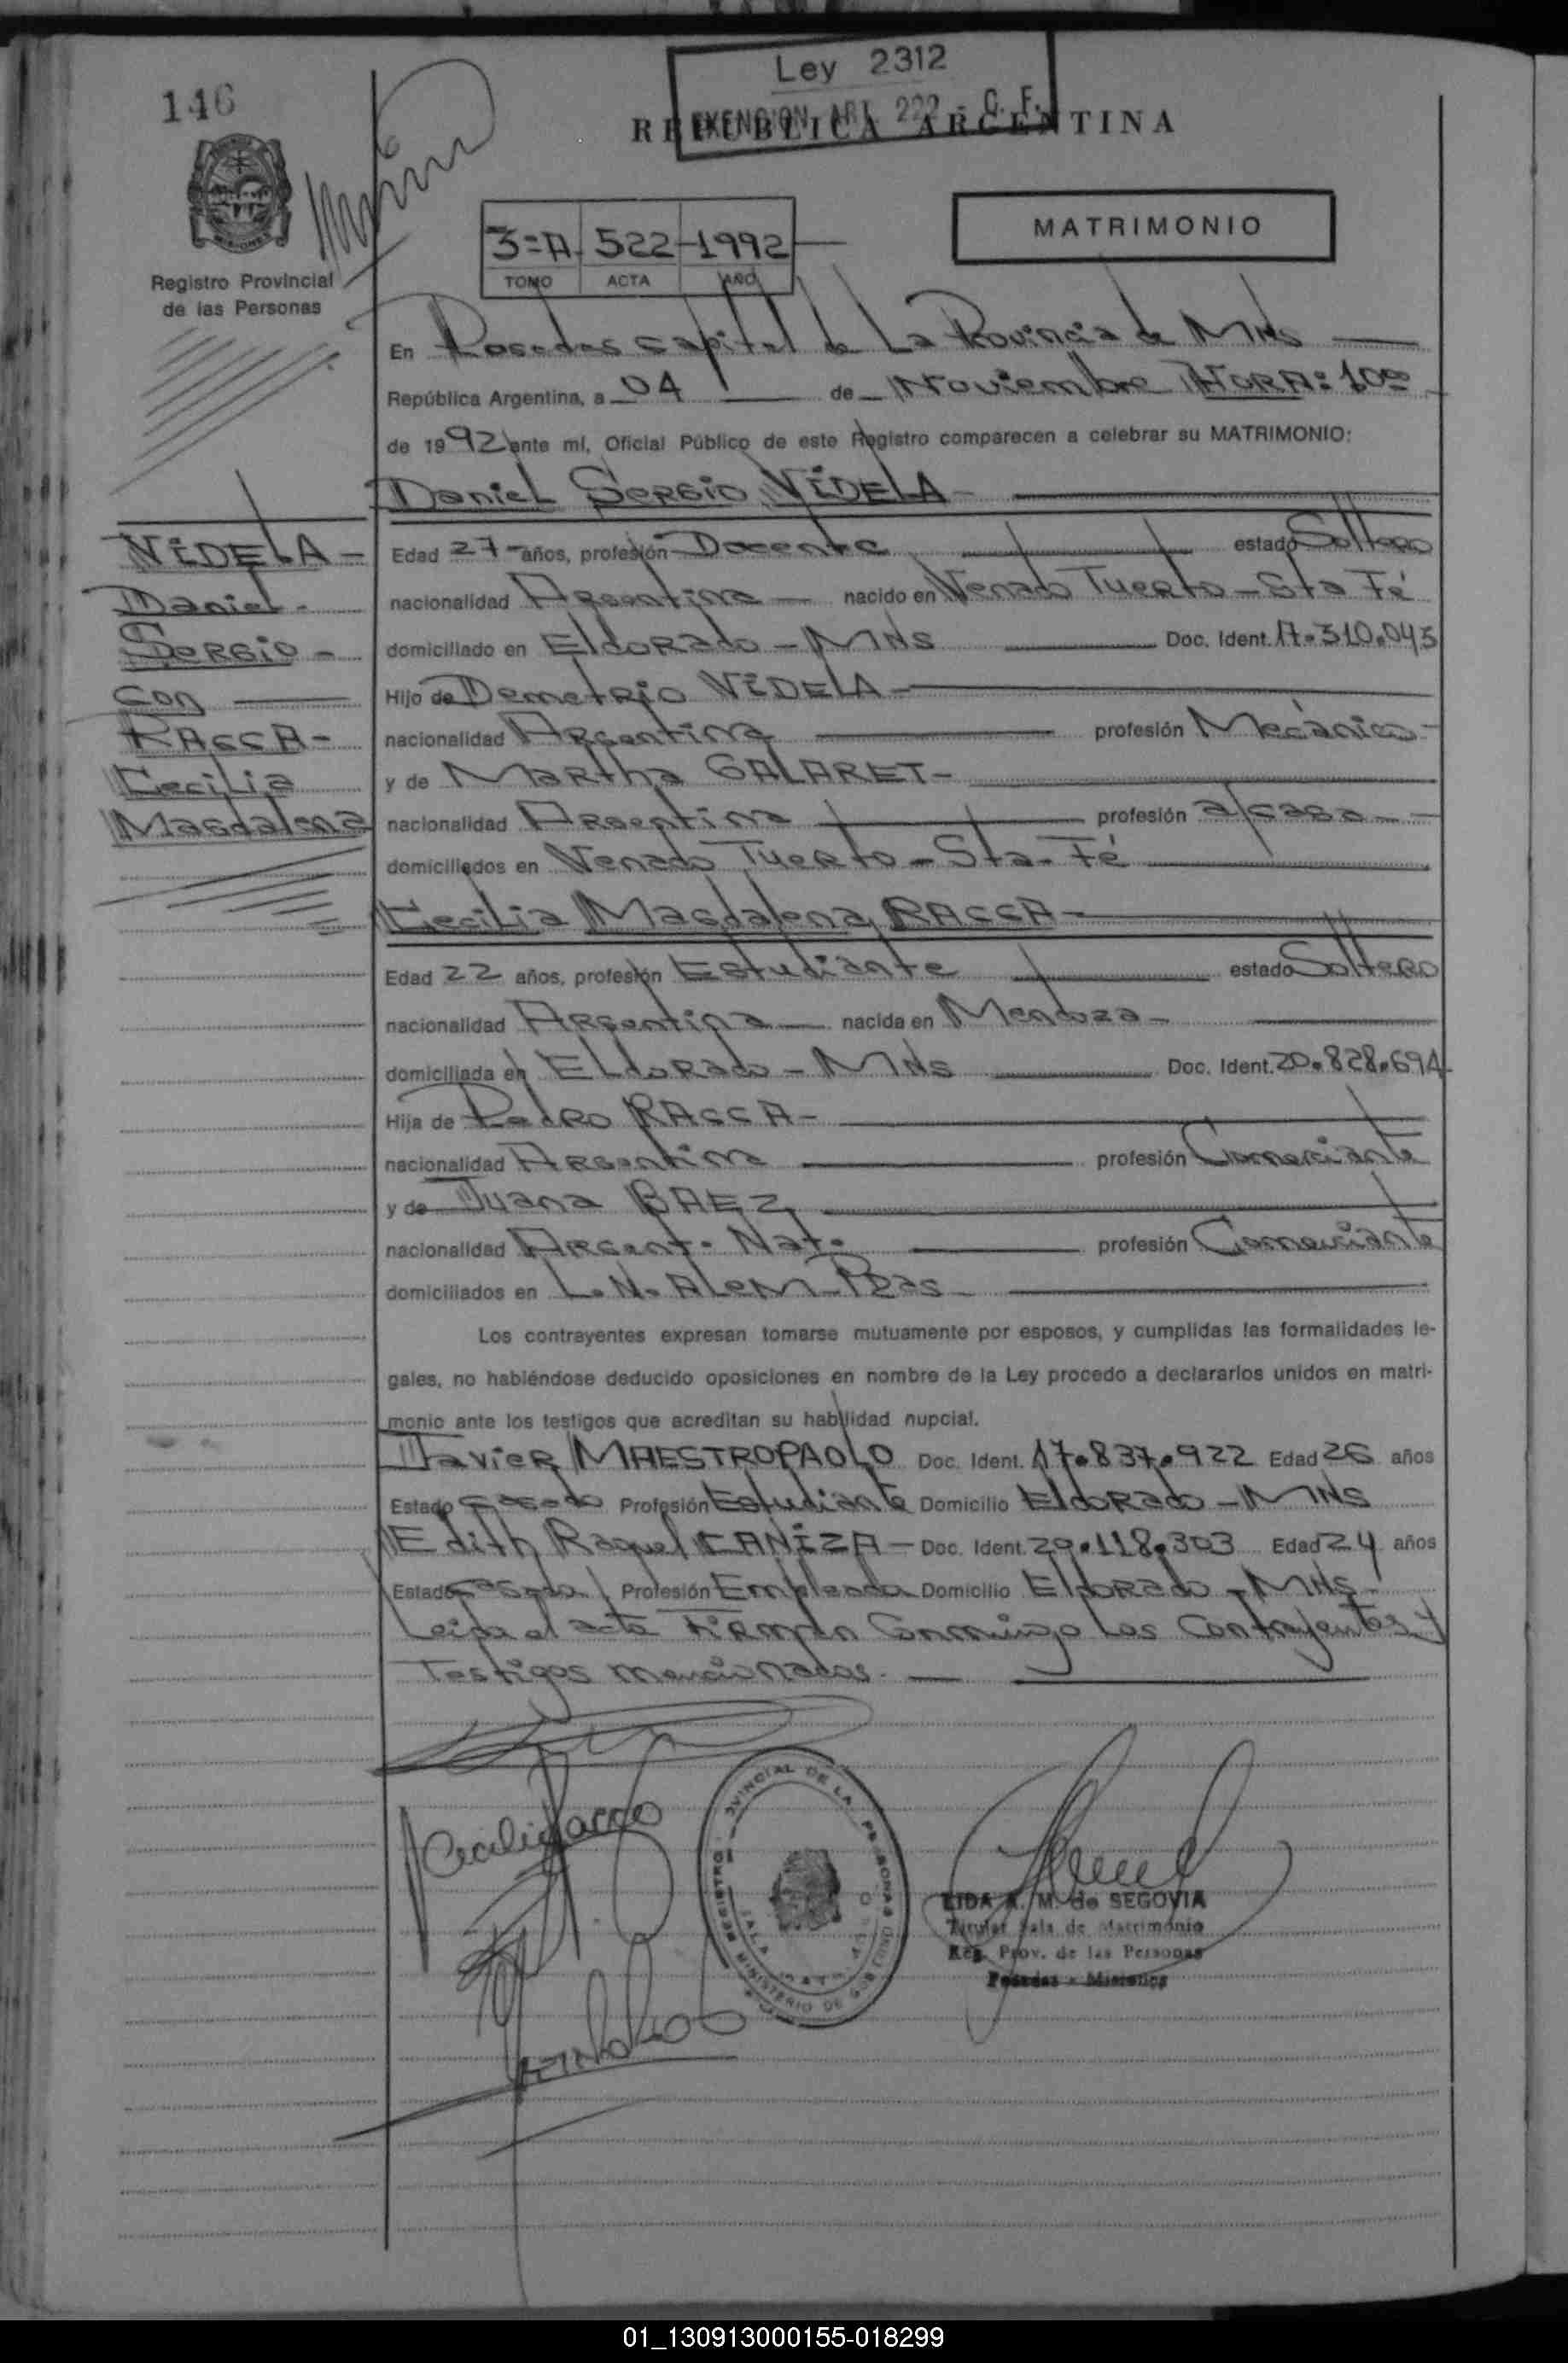 146
Ley 2312
EXENCION ART. 222 - C. F.
REPUBLICA ARGENTINA
MISIONES
Registro Provincial
de las Personas
3=A- 522-1992
TOMO ACTA AÑO
MATRIMONIO
En Posadas capital de La Provincia de MNs
República Argentina, a 04 de Noviembre HORA: 10oo
de 1992 ante mí, Oficial Público de este Registro comparecen a celebrar su MATRIMONIO:
Daniel Sergio VIDELA-
VIDELA-
Daniel-
Sergio-
con
RACCA-
Cecilia
Magdalena
Edad 27- años, profesión Docente estado Soltero
nacionalidad Argentina nacido en Venado Tuerto-Sta Fé
domiciliado en Eldorado-MNs Doc. Ident. 17.310.043
Hijo de Demetrio VIDELA-
nacionalidad Argentina profesión Mecánico-
y de Martha GALARET-
nacionalidad Argentina profesión a/casa-
domiciliados en Venado Tuerto-Sta-Fé
Cecilia Magdalena RACCA-
Edad 22 años, profesión Estudiante estado Soltero
nacionalidad Argentina nacida en Mendoza-
domiciliada en Eldorado-MNs Doc. Ident. 20.828.694-
Hija de Pedro RACCA-
nacionalidad Argentina profesión Comerciante
y de Juana BAEZ
nacionalidad Argent. Nat. profesión Comerciante
domiciliados en L.N.Alem-Pdas-
Los contrayentes expresan tomarse mutuamente por esposos, y cumplidas las formalidades le-
gales, no habiéndose deducido oposiciones en nombre de la Ley procedo a declararlos unidos en matri-
monio ante los testigos que acreditan su habilidad nupcial.
Javier MAESTROPAOLO Doc. Ident. 17.837.922 Edad 26 años
Estado Casado Profesión Estudiante Domicilio Eldorado-MNs
Edith Raquel CAÑIZA- Doc. Ident. 20.118.303 Edad 24 años
Estado Casada Profesión Empleada Domicilio Eldorado-MNs-
Leída el acta Firman Conmigo Los Contrayentes y
Testigos mencionados.
Cecilia Racca
REGISTRO PROVINCIAL DE LAS PERSONAS
MINISTERIO DE GOBIERNO
SALA
LIDA A. M. de SEGOVIA
Titular Sala de Matrimonio
Reg. Prov. de las Personas
Posadas - Misiones
01_130913000155-018299